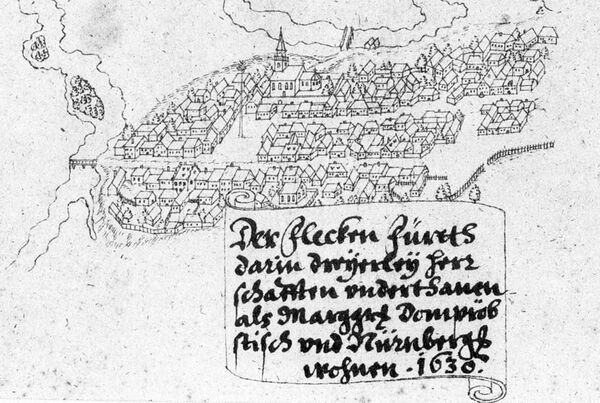 Der Flecken Fürtth
darin dreÿerleÿ herr
schafften vnderthanen
als Marggrf Dompröb
stisch vnd Nürnbergs
wohnen · 1630.